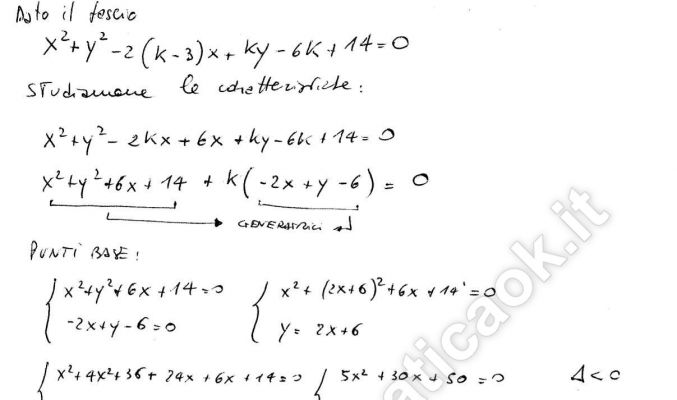 Dato il fascio
x²+y²-2(k-3)x+ky-6k+14=0
Studiamone le caratteristiche:
x²+y²-2kx+6x+ky-6k+14=0
x²+y²+6x+14+k(-2x+y-6)=0
GENERATRICI
PUNTI BASE:
{x²+y²+6x+14=0 {x²+(2x+6)²+6x+14=0
-2x+y-6=0 y=2x+6
{x²+4x²+36+24x+6x+14=0 {5x²+30x+50=0 Δ<0
aticaok.it